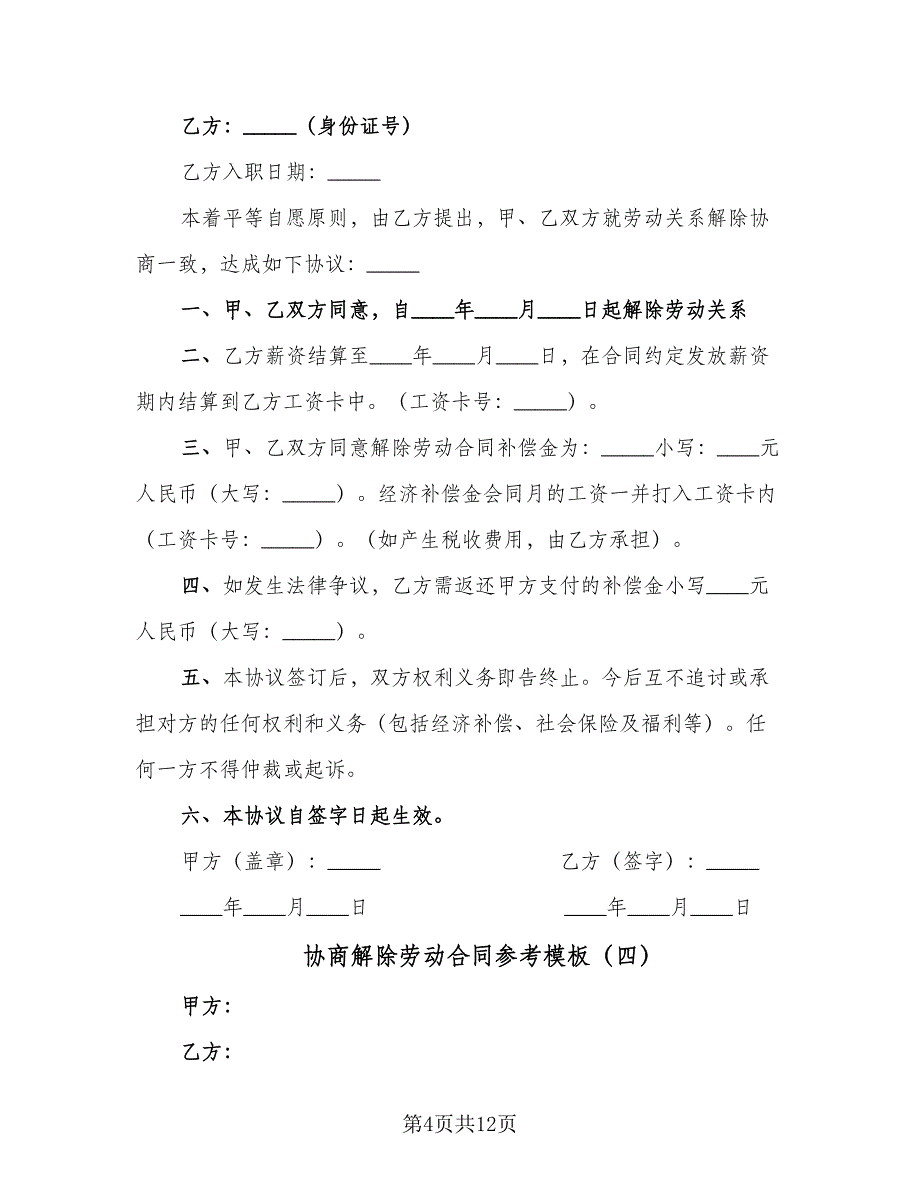 乙方：_____（身份证号）
乙方入职日期：_____
本着平等自愿原则，由乙方提出，甲、乙双方就劳动关系解除协
商一致，达成如下协议：_____
一、甲、乙双方同意，自____年____月____日起解除劳动关系
二、乙方薪资结算至____年____月____日，在合同约定发放薪资
期内结算到乙方工资卡中。（工资卡号：_____）。
三、甲、乙双方同意解除劳动合同补偿金为：_____小写：____元
人民币（大写：_____）。经济补偿金会同月的工资一并打入工资卡内
（工资卡号：_____）。（如产生税收费用，由乙方承担）。
四、如发生法律争议，乙方需返还甲方支付的补偿金小写____元
人民币（大写：_____）。
五、本协议签订后，双方权利义务即告终止。今后互不追讨或承
担对方的任何权利和义务（包括经济补偿、社会保险及福利等）。任
何一方不得仲裁或起诉。
六、本协议自签字日起生效。
甲方（盖章）：_____ 乙方（签字）：_____
____年____月____日 ____年____月____日
协商解除劳动合同参考模板（四）
甲方：
乙方：
第4页共12页